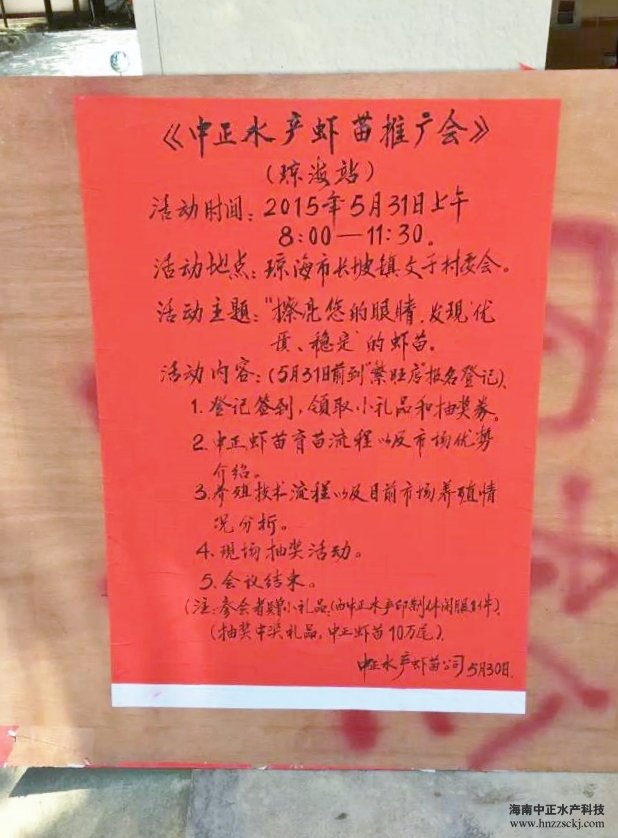 《中正水产虾苗推广会》
(琼海站)
活动时间:2015年5月31日上午
8:00—11:30。
活动地点:琼海市长坡镇文子村委会。
活动主题:"擦亮您的眼睛,发现'优
质、稳定'的虾苗。
活动内容:(5月31日前到"繁旺店"报名登记)。
1. 登记签到,领取小礼品和抽奖券。
2. 中正虾苗育苗流程以及市场优势
介绍。
3. 养殖技术流程以及目前市场养殖情
况分析。
4. 现场抽奖活动。
5. 会议结束。
(注:参会者赠小礼品,(由中正水产印制休闲服1件)。
(抽奖中奖礼品,中正虾苗10万尾)。
中正水产虾苗公司 5月30日.
海南中正水产科技
www.hnzzsckj.com